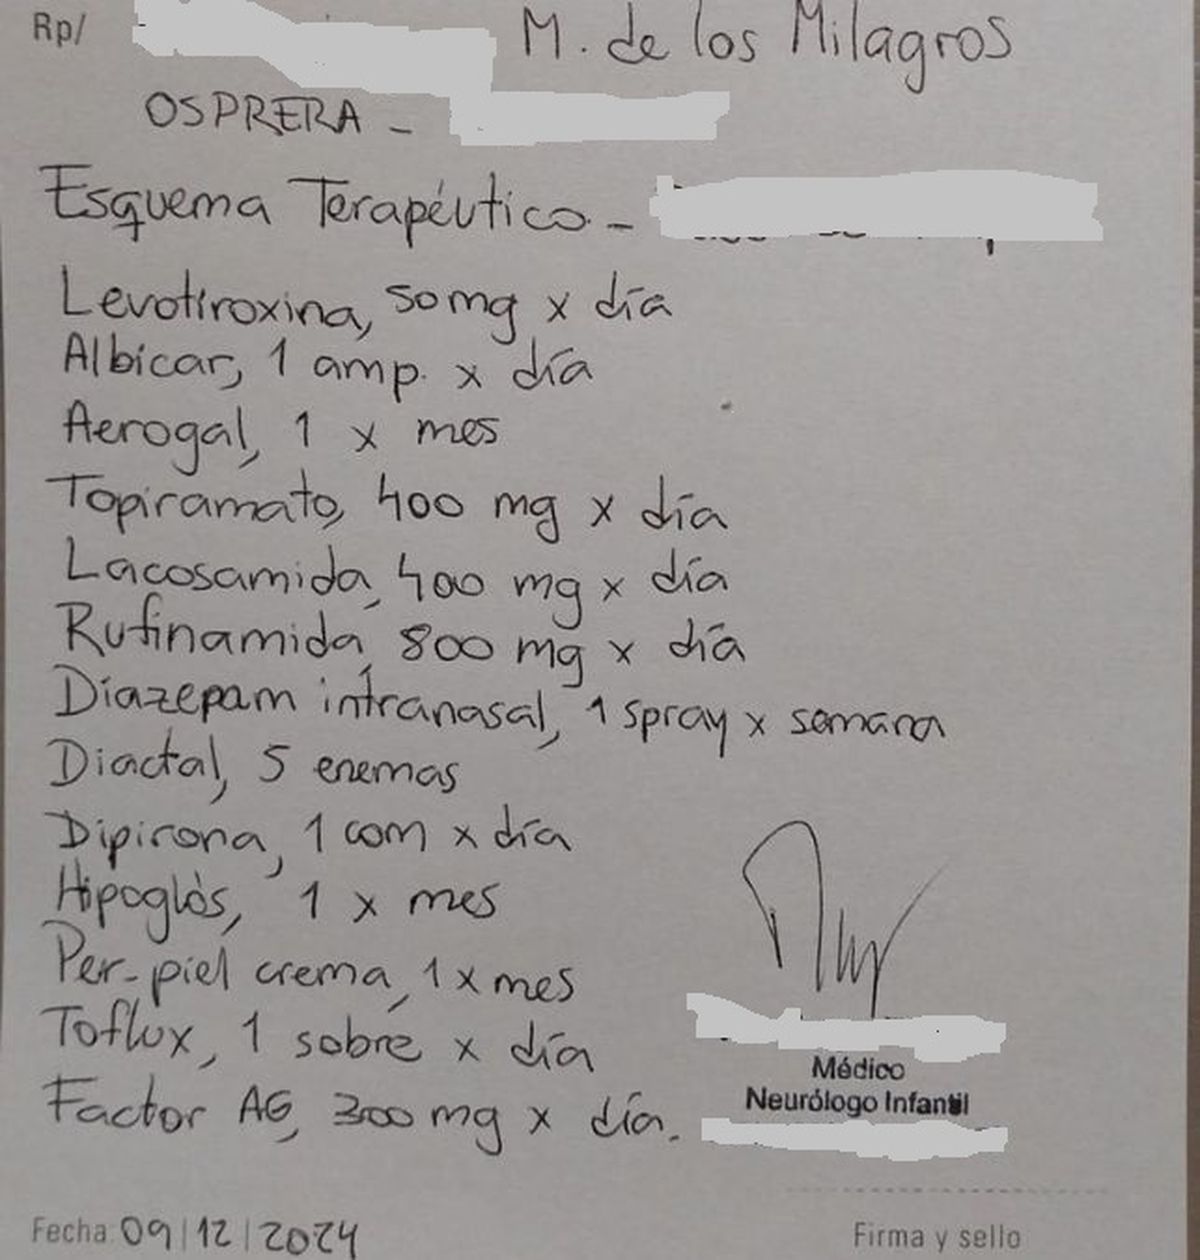 Rp/ M. de los Milagros
OSPRERA -
Esquema Terapéutico -
Levotiroxina, 50 mg x día
Albicar, 1 amp. x día
Aerogal, 1 x mes
Topiramato, 400 mg x día
Lacosamida, 400 mg x día
Rufinamida, 800 mg x día
Diazepam intranasal, 1 spray x semana
Diactal, 5 enemas
Dipirona, 1 com x día
Hipoglós, 1 x mes
Per-piel crema, 1 x mes
Toflux, 1 sobre x día
Factor AG, 300 mg x día.
Médico
Neurólogo Infantil
Fecha 09|12|2024
Firma y sello